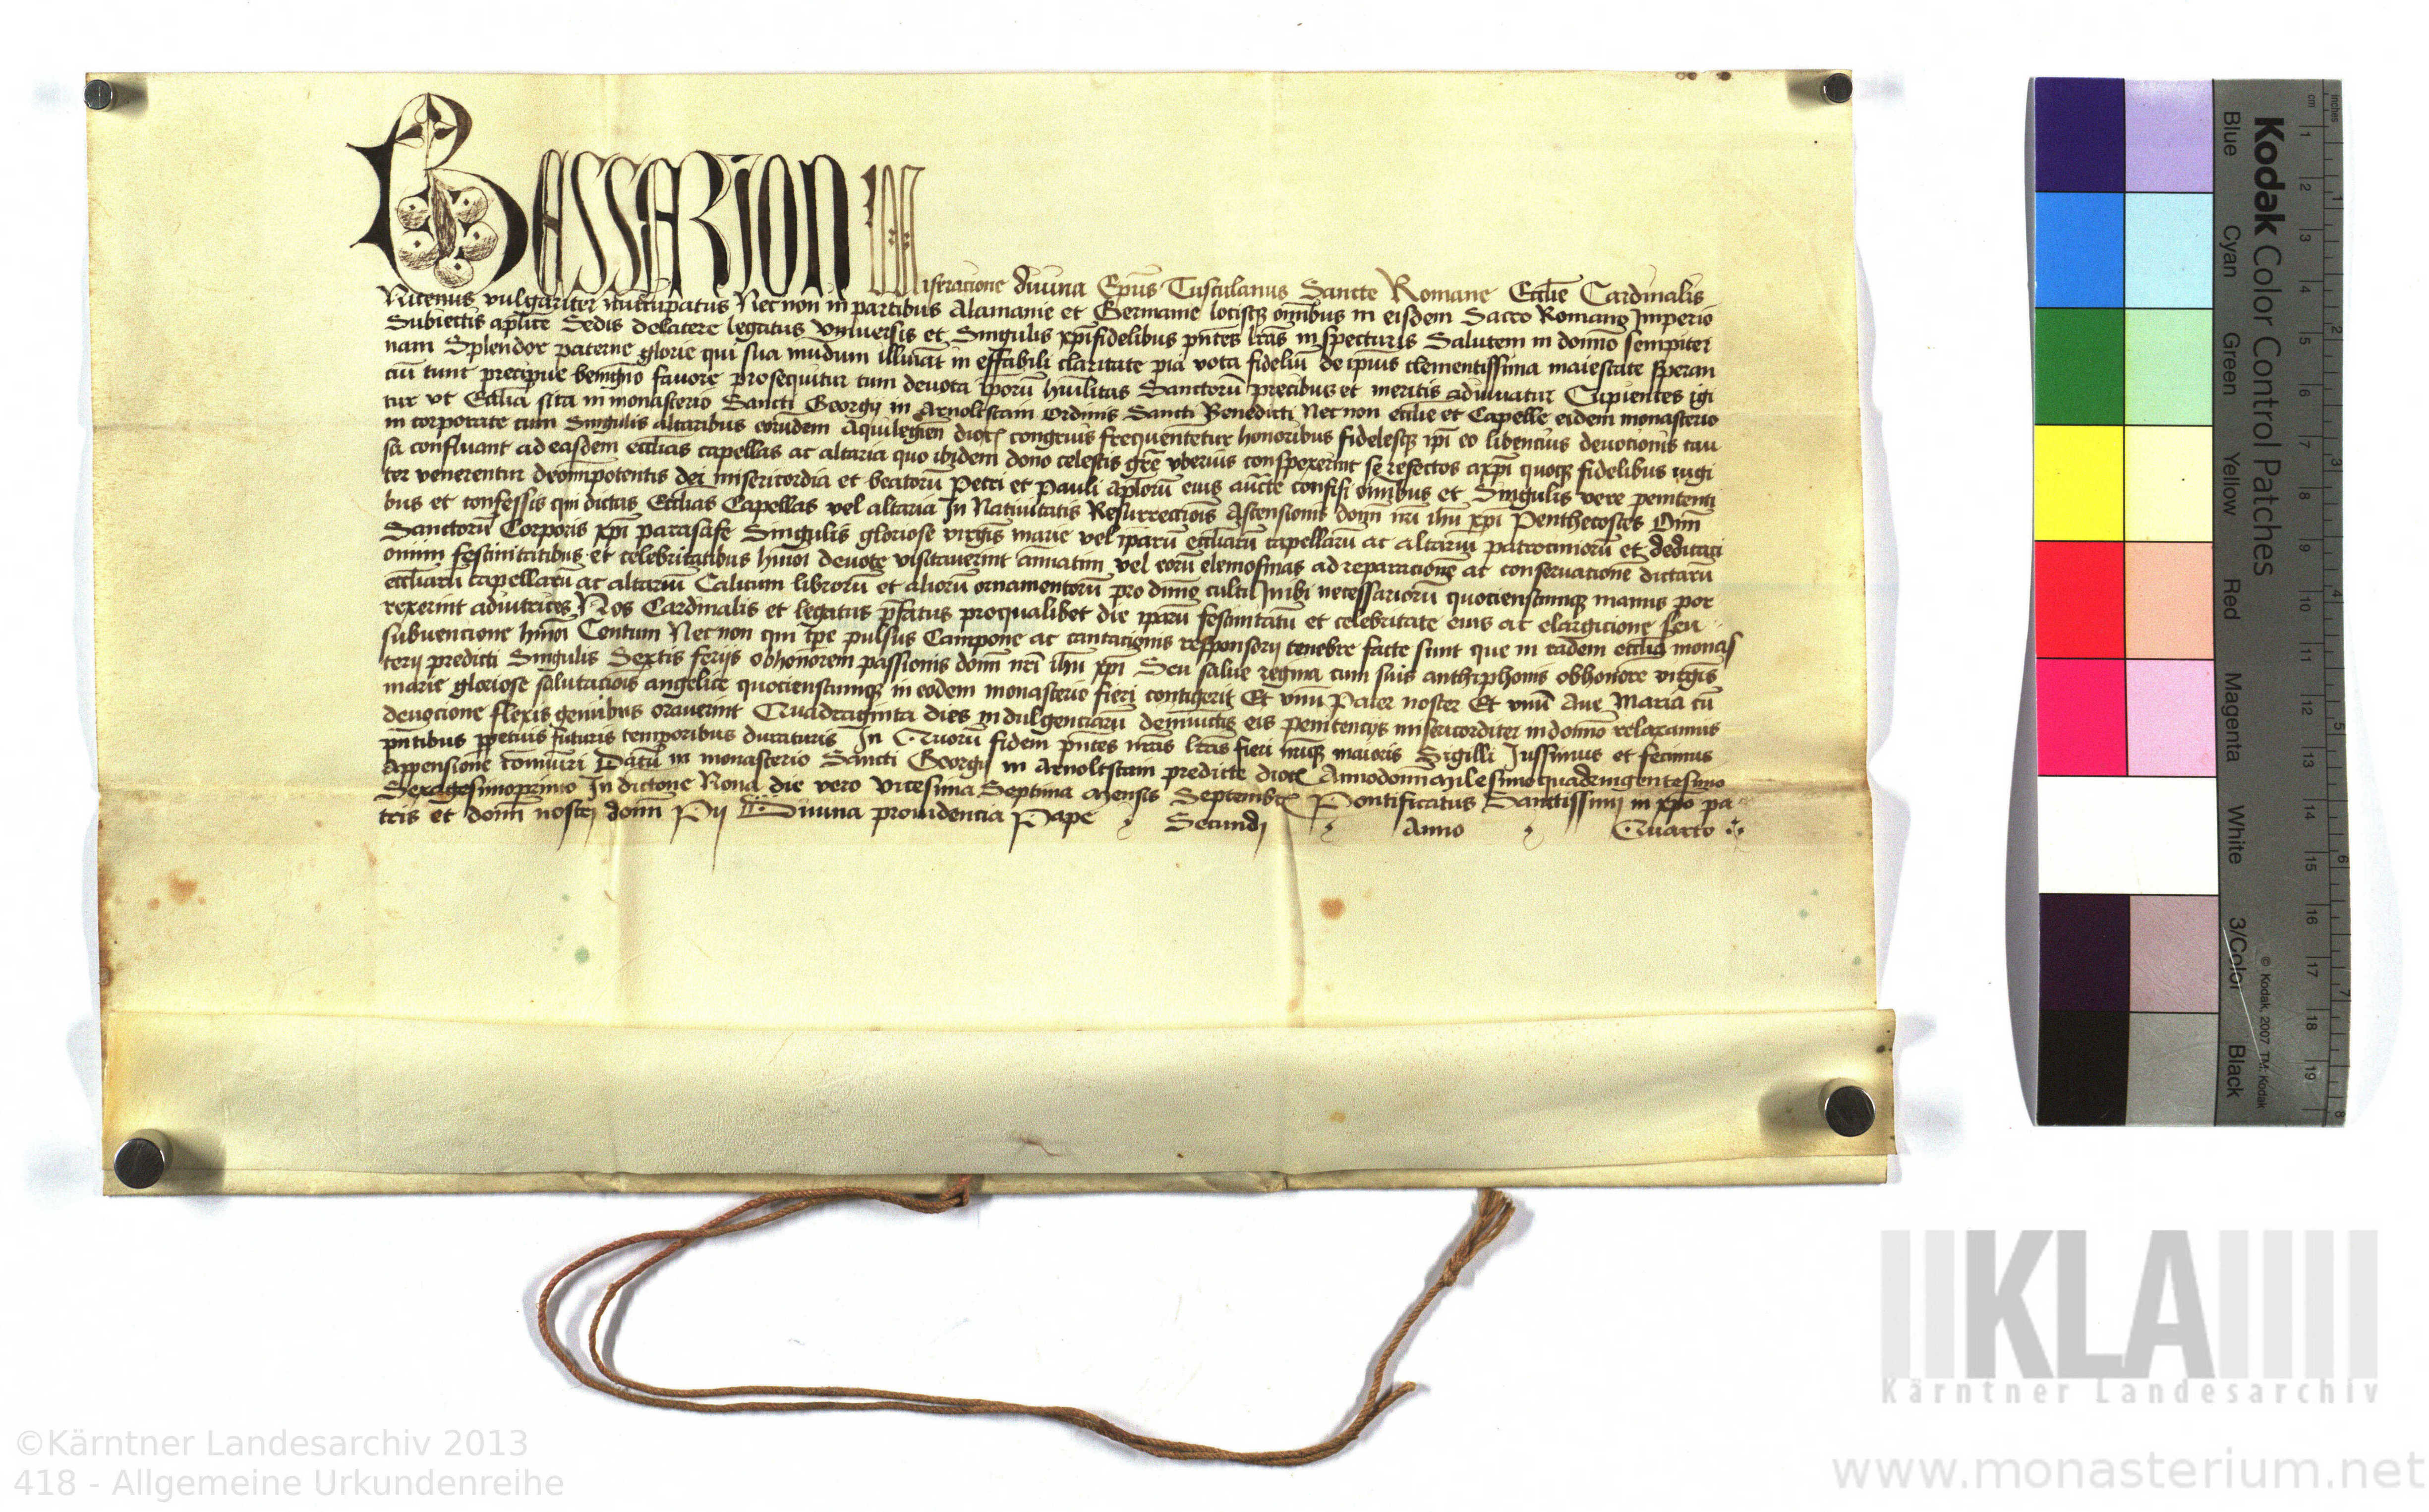 BESSARION Miseracione diuina Ep̄us Tusculanus Sancte Romane Ecclie Cardinalis
Nicenus vulgariter nuccupatus Necnon in partibus Alamanie et Germanie locisq̄ om̄ibus in eisdem Sacro Romano Imperio
Subiectis ap̄lice Sedis delatere legatus Vniuersis et Singulis xp̄ifidelibus pn̄tes lr̄as inspecturis Salutem in domīo sempiter
nam Splendor paterne glorie qui sua mūdum illuīat in effabili claritate pia vota fideliū de ip̄ius clementissima maiestate speran
ciū tunc precipue benigno fauore prosequitur cum deuota ip̄orū hūilitas Sanctorū precibus et meritis adiuuatur Cupientes igi
tur vt Ecclia sita in monasterio Sancti Georgij in Arnoltstain Ordinis Sancti Benedicti Necnon ecclie et Capelle eidem monasterio
in corporate cum Singulis altaribus eorundem Aquilegien̄ dioc̄ congruis frequententur honoribus fidelesq̄ ip̄i eo libencius deuocionis cau
sa confluant ad easdem ecclias capellas ac altaria quo ibidem dono celestis gr̄e vberius conspexerint se refectos axp̄i quoq̄ fidelibus iugi
ter venerentur deom̄ipotentis dei misericordia et beatorū Petri et Pauli ap̄lorū eius auc̄te confisi om̄ibus et Singulis vere penitenti
bus et confessis qui dictas Ecclias Capellas vel altaria In Natiuitatis Resurreccīois Ascensionis domī nr̄i ih̄u xp̄i Penthecostes Om̄i
Sanctorū Corporis xp̄i parasafe Singulis gloriose virgīs marie vel ip̄arū eccliarū capellarū ac altariū patrociniorū et dedicaci
onum festiuitatibus et celebritatibus hm̄oi deuote visitauerint an̄uatim vel eorū elemosinas ad reparacionē ac conseruacionē dictarū
eccliarū capellarū ac altariū Calicum librorū et aliorū ornamentorū pro diuīo cultu Inibi necessariorū quocienscumq̄ manus por
rexerint adiutrices Nos Cardinalis et legatus p̄fatus proqualibet die ip̄arū festiuitatū et celebritate eius ac elargicione seu
subuencione hm̄oi Centum Necnon qui tp̄e pulsus Campane ac cantacionis responsorij tenebre facte sunt que in eadem ecclia monas
terij predicti Singulis Sextis ferijs obhonorem passionis domī nr̄i ih̄u xp̄i Seu salue regina cum suis anthiphonis obhonore virgīs
marie gloriose salutacīois angelice quocienscumq̄ in eodem monasterio fieri contigerit Et vnū Pater noster Et vnū Aue Maria cū
deuocione flexis genibus orauerint Quadraginta dies indulgenciarū deiniūctis eis penitencijs misericorditer in domīo relaxamus
pn̄tibus ppetuis futuris temporibus duraturis In Quorū fidem pn̄tes nr̄as lr̄as fieri nr̄iq̄ maioris Sigilli Iussimus et fecimus
Appensione com̄uniri Datū in monasterio Sancti Georgij in Arnoltstain predicte dioc̄ Annodomī millesimoquadringentesimo
Sexagesimoprimo In dictone Nona die vero Vicesima Septima mensis Septembr̄ Pontificatus Sanctissimi in xp̄o pa
tris et domī nostri domī Pij Diuina prouidencia Pape Secundi Anno Quarto
Kodak Color Control Patches
Blue Cyan Green Yellow Red Magenta White 3/Color Black
© Kodak, 2007 TM: Kodak
cm 1 2 3 4 5 6 7 8 9 10 11 12 13 14 15 16 17 18 19
inches 1 2 3 4 5 6 7 8
KLA
Kärntner Landesarchiv
©Kärntner Landesarchiv 2013
418 - Allgemeine Urkundenreihe
www.monasterium.net